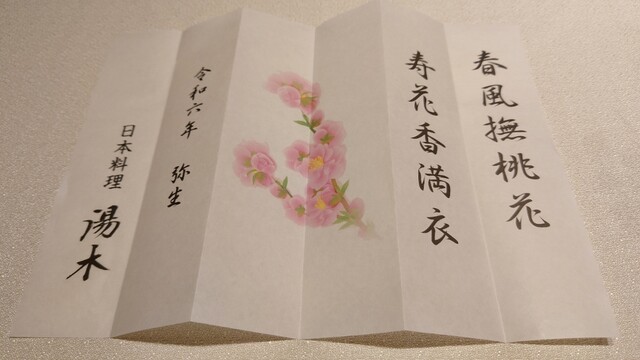 春風撫桃花
寿花香満衣
令和六年 弥生
日本料理 湯木